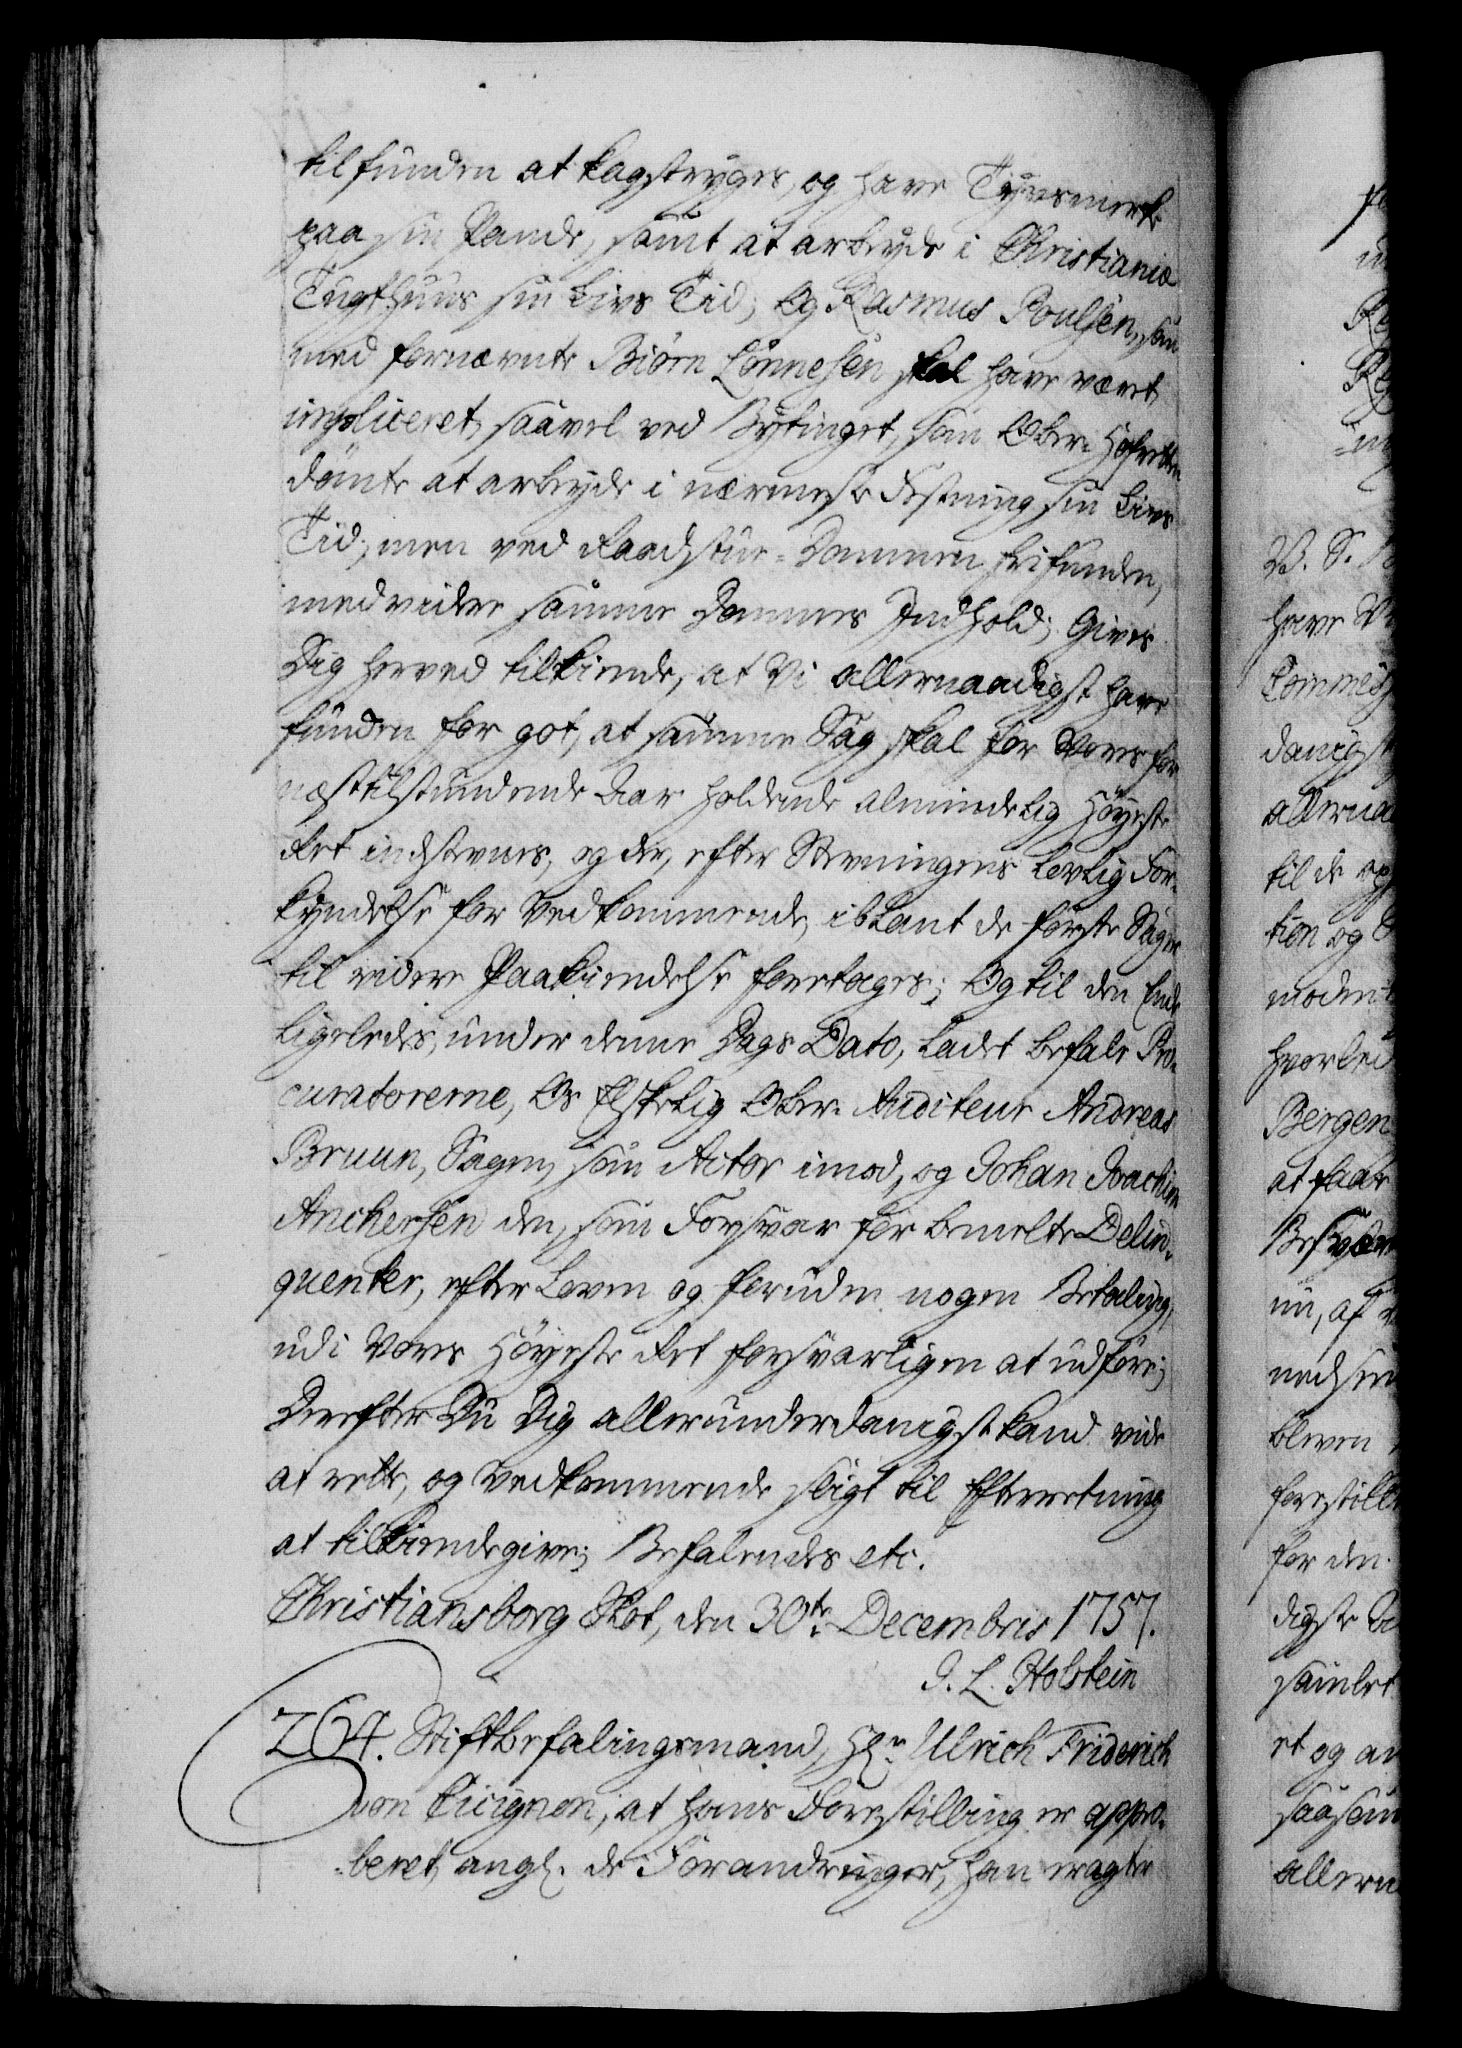 tilfunden at kagstryges, og have Tyvsmerke
paa sin Pande, samt at arbeyde i Christianiæ
Tugthuus sin Livs Tid; Og Rasmus Poulsen, som
med fornævnte Biörn Lönnesen skal have været
impliceret, saavel ved Bytinget, som Ober-Hofretten
dömte at arbeyde i nærmeste Festning sin Livs
Tid; men ved Raadstue-Dommen frifunden,
med videre samme Dommes Indhold; Gives
Dig herved tilkiende, at Vi allernaadigst have
funden for got, at samme Sag skal for Vores for
næsttilstundende Aar holdende almindelig Höyeste
Ret indstevnes, og der, efter Stevningens lovlig For-
kyndelse for Vedkommende, iblant de förste Sager
til videre Paakiendelse foretages; Og til den Ende
ligeledes, under denne Dags Dato, ladet befale Pro-
curatorerne, Os Elskelig Ober-Auditeur Andreas
Bruun, Sagen, som Actor imod, og Johan Joachim
Anchersen den, som Forsvar for bemelte Delin-
quenter, efter Loven og foruden nogen Betaling,
udi Vores Höyeste Ret forsvarligen at udföre;
Derefter Du Dig allerunderdanigst kand vide
at rette, og Vedkommende sligt til Efterretning
at tilkiendegive; Befalendes etc.
Christiansborg Slot, den 30te Decembris 1757.
J. L. Holstein
264. Stiftbefalingsmand, Hr Ulrich Friderich
von Cicignon, at hans Forestilling er appro-
beret, angl. de Forandringer, han eragter